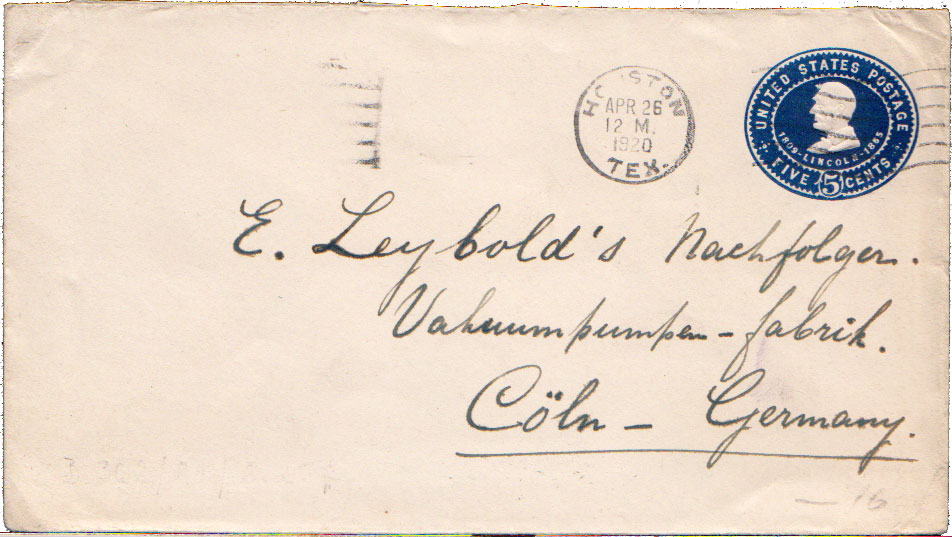 HOUSTON
APR 26
12 M.
1920
TEX.
UNITED STATES POSTAGE
1809-LINCOLN-1865
FIVE 5 CENTS
E. Leybold's Nachfolger.
Vakuumpumpen-fabrik.
Cöln - Germany.
16